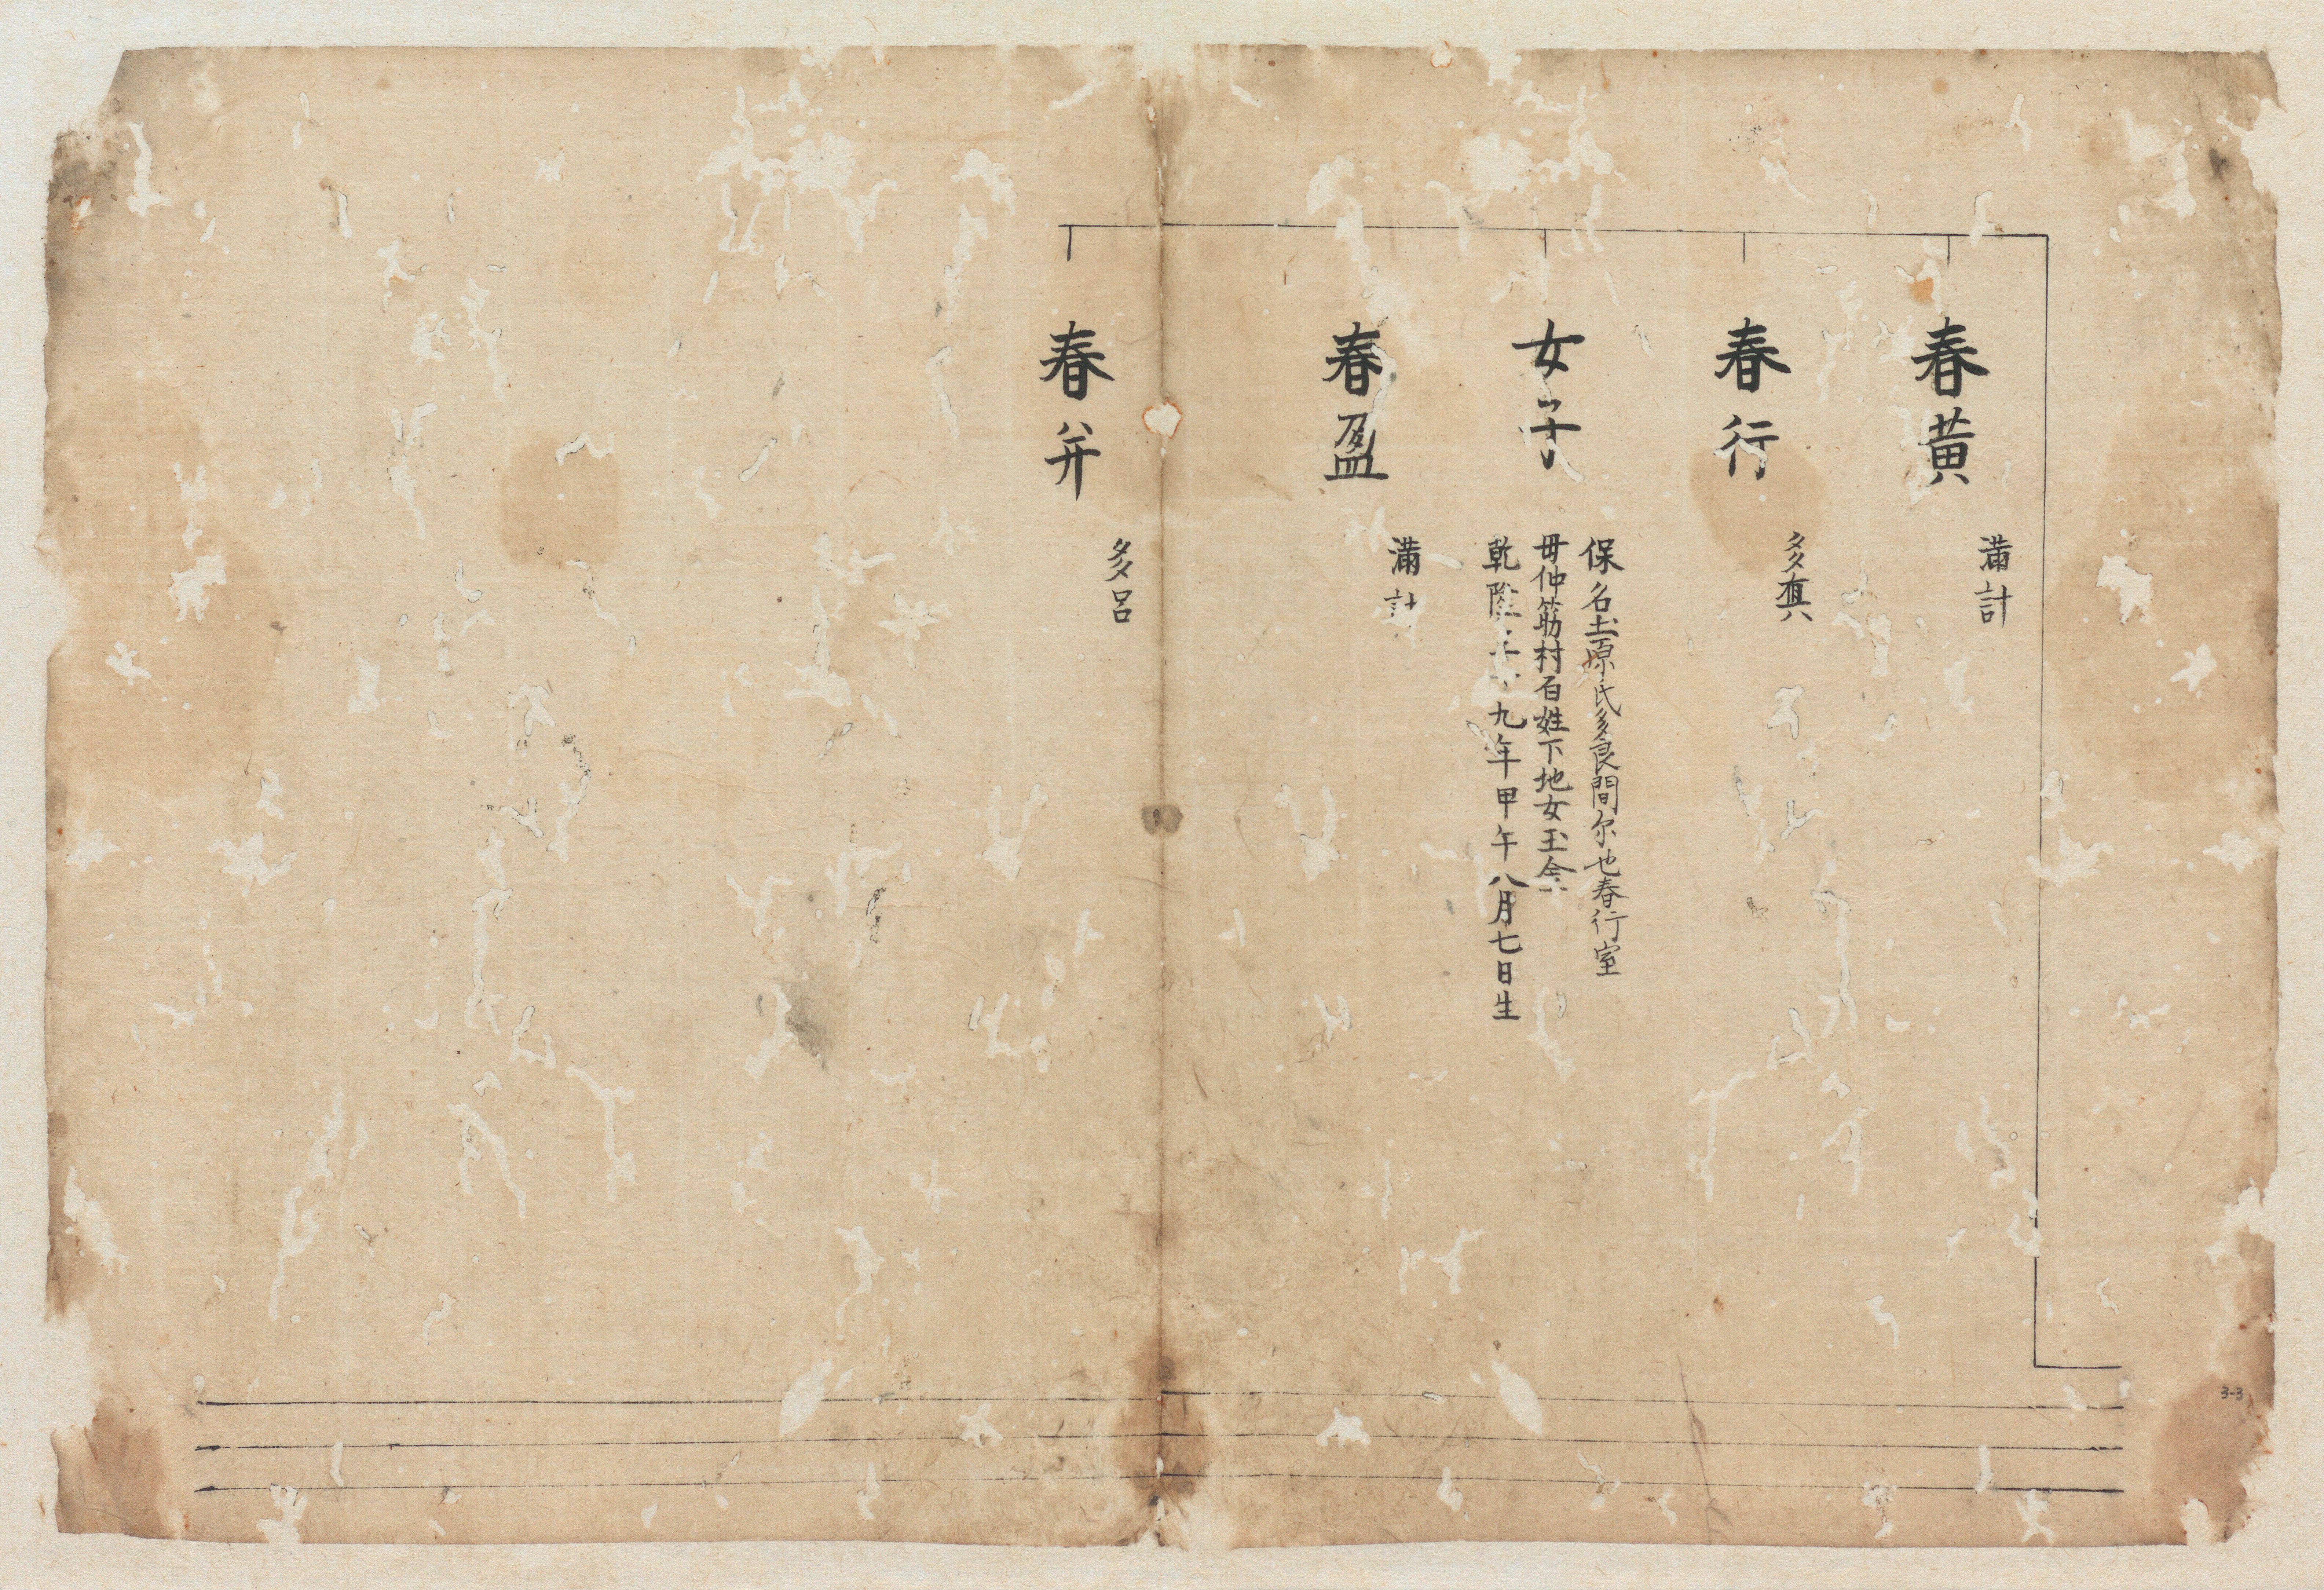 春黄
滿計
春行
多真
女子
保名圡原氏多良間尓也春行室
母仲筋村百姓下地女玉金
乾隆三十九年甲午八月七日生
春盈
滿計
春并
多呂
3-3